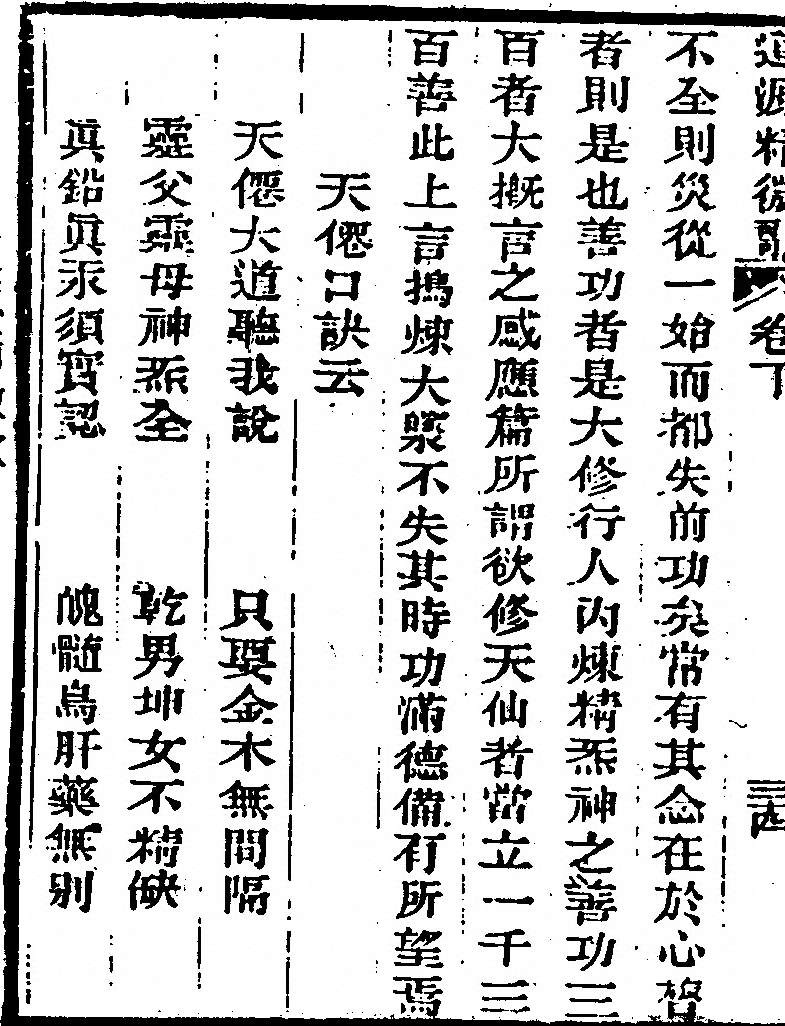 道源精微歌 卷下 三四
不全則災從一始而都失前功矣常有其念在於心督
者則是也善功者是大修行人內煉精炁神之善功三
百者大概言之感應篇所謂欲修天仙者當立一千三
百善此上言搗煉大藥不失其時功滿德備有所望焉
天僊口訣云
天僊大道聽我說 只要金木無間隔
靈父靈母神炁全 乾男坤女不精缺
眞鉛眞汞須實認 魄髓烏肝藥無别